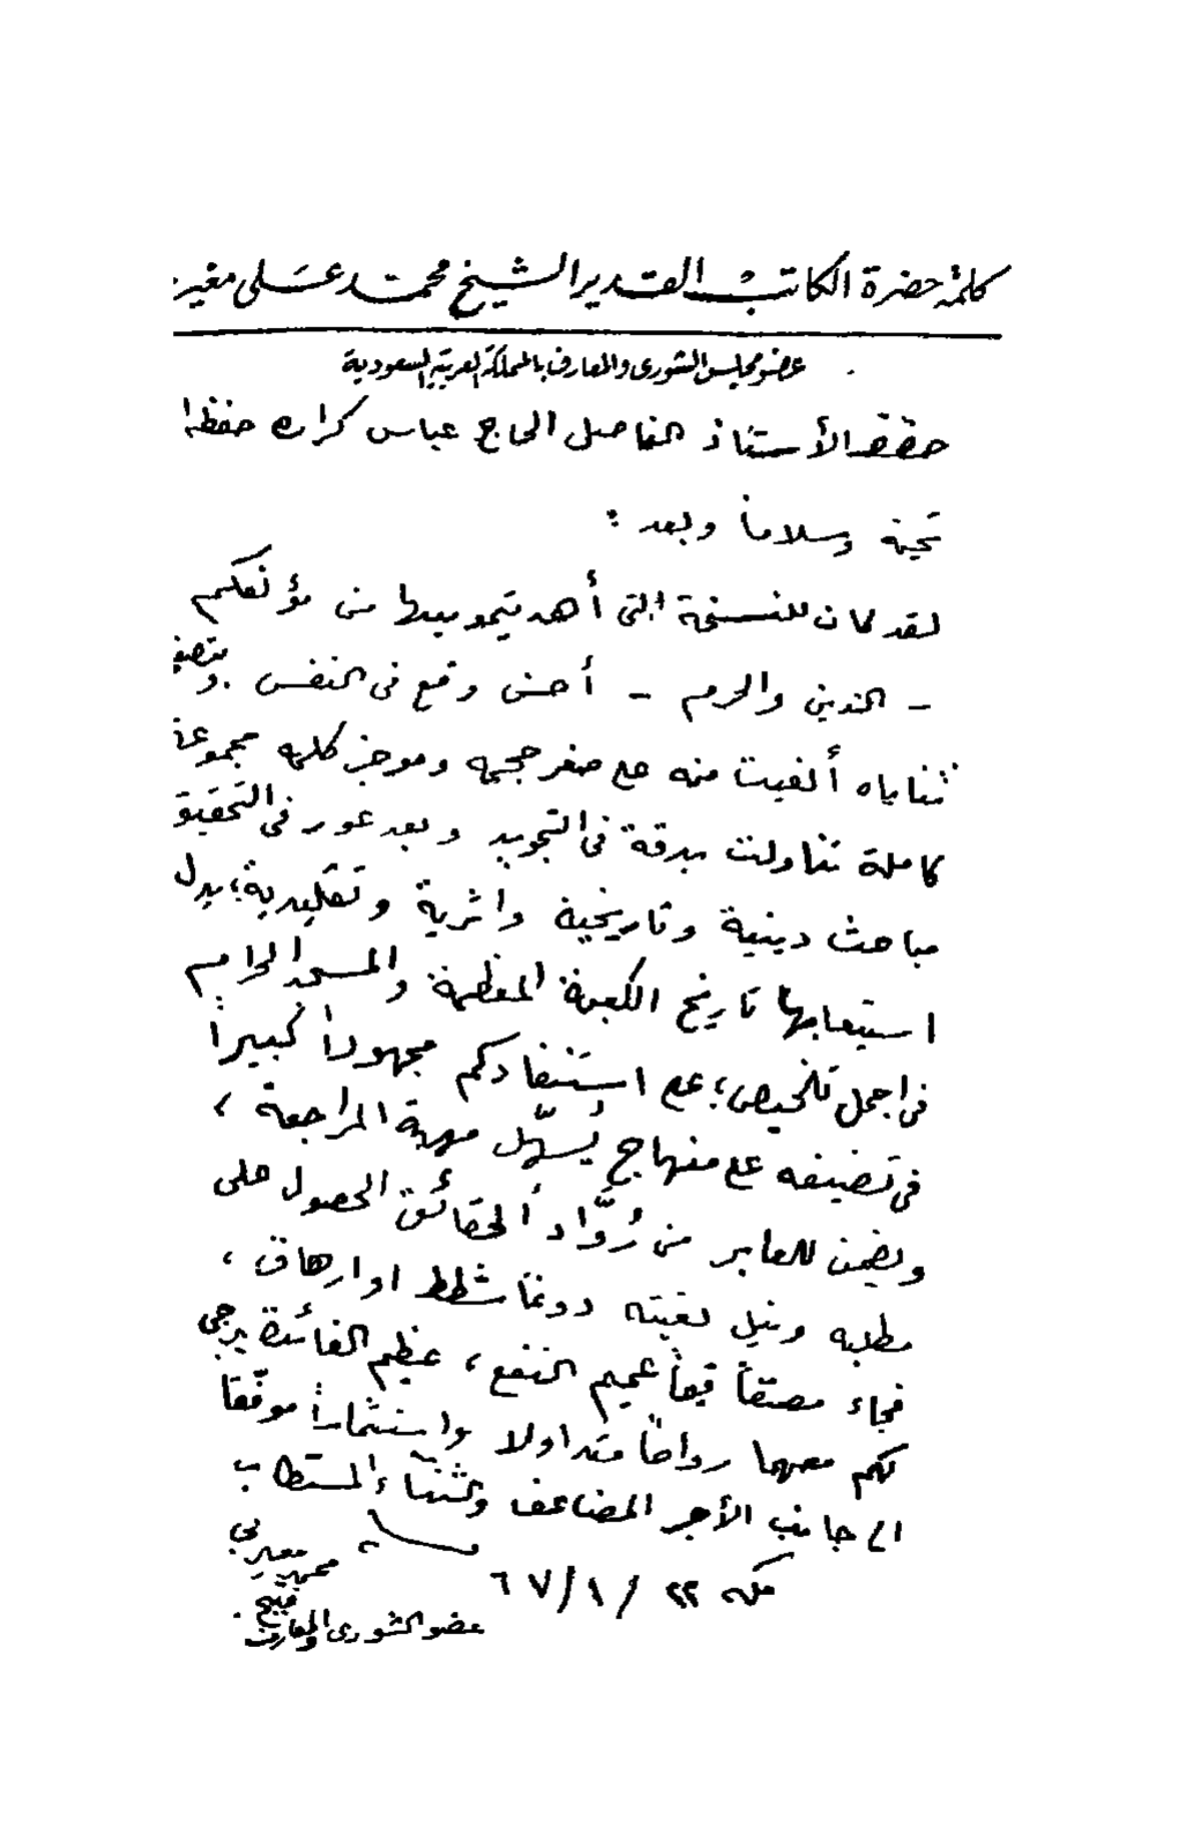 كلمة حضرة الكاتب القدير الشيخ محمد على مغير
عضو مجلس الشورى والمعارف بالمملكة العربية السعودية
الأستاذ الفاضل الحاج عباس كراره حفظه ا
تحية وسلاما وبعد :
لقد كان للنسخة التى أهديتموبيها من مؤلفكم
- الدين والحرم - أحسن وقع فى النفس . وبتصفح
ثناياه ألفيت منه مع صغر حجمه وموجز كلمه مجموعة
كاملة تناولت بدقة فى التجويد وبعد غور فى التحقيق
مباحث دينية وتاريخية واثرية وتقليدية ؛ بدل
استيعابها تاريخ الكعبة المعظمة والمسجد الحرام
فى اجمل تلخيص ؛ مع استنفادكم مجهوداً كبيراً
فى تصنيفه مع منهاج يُسهّل مهمة المراجعة ،
ويضمن للعابر من رُوَّاد الحقائق الحصول على
مطلبه ونيل بغيته دونما شطط او ارهاق ،
فجاء قيماً عميم النفع ، عظيم الفائدة يرجى
لكم معهما رواجاً متداولا واستثماراً موفّقا
الى جانب الأجر المضاعف والثناء المستطاب
مكه ٢٢ / ١ / ٦٧
محمد مغيربى
فتيح
عضو الشورى والمعارف .